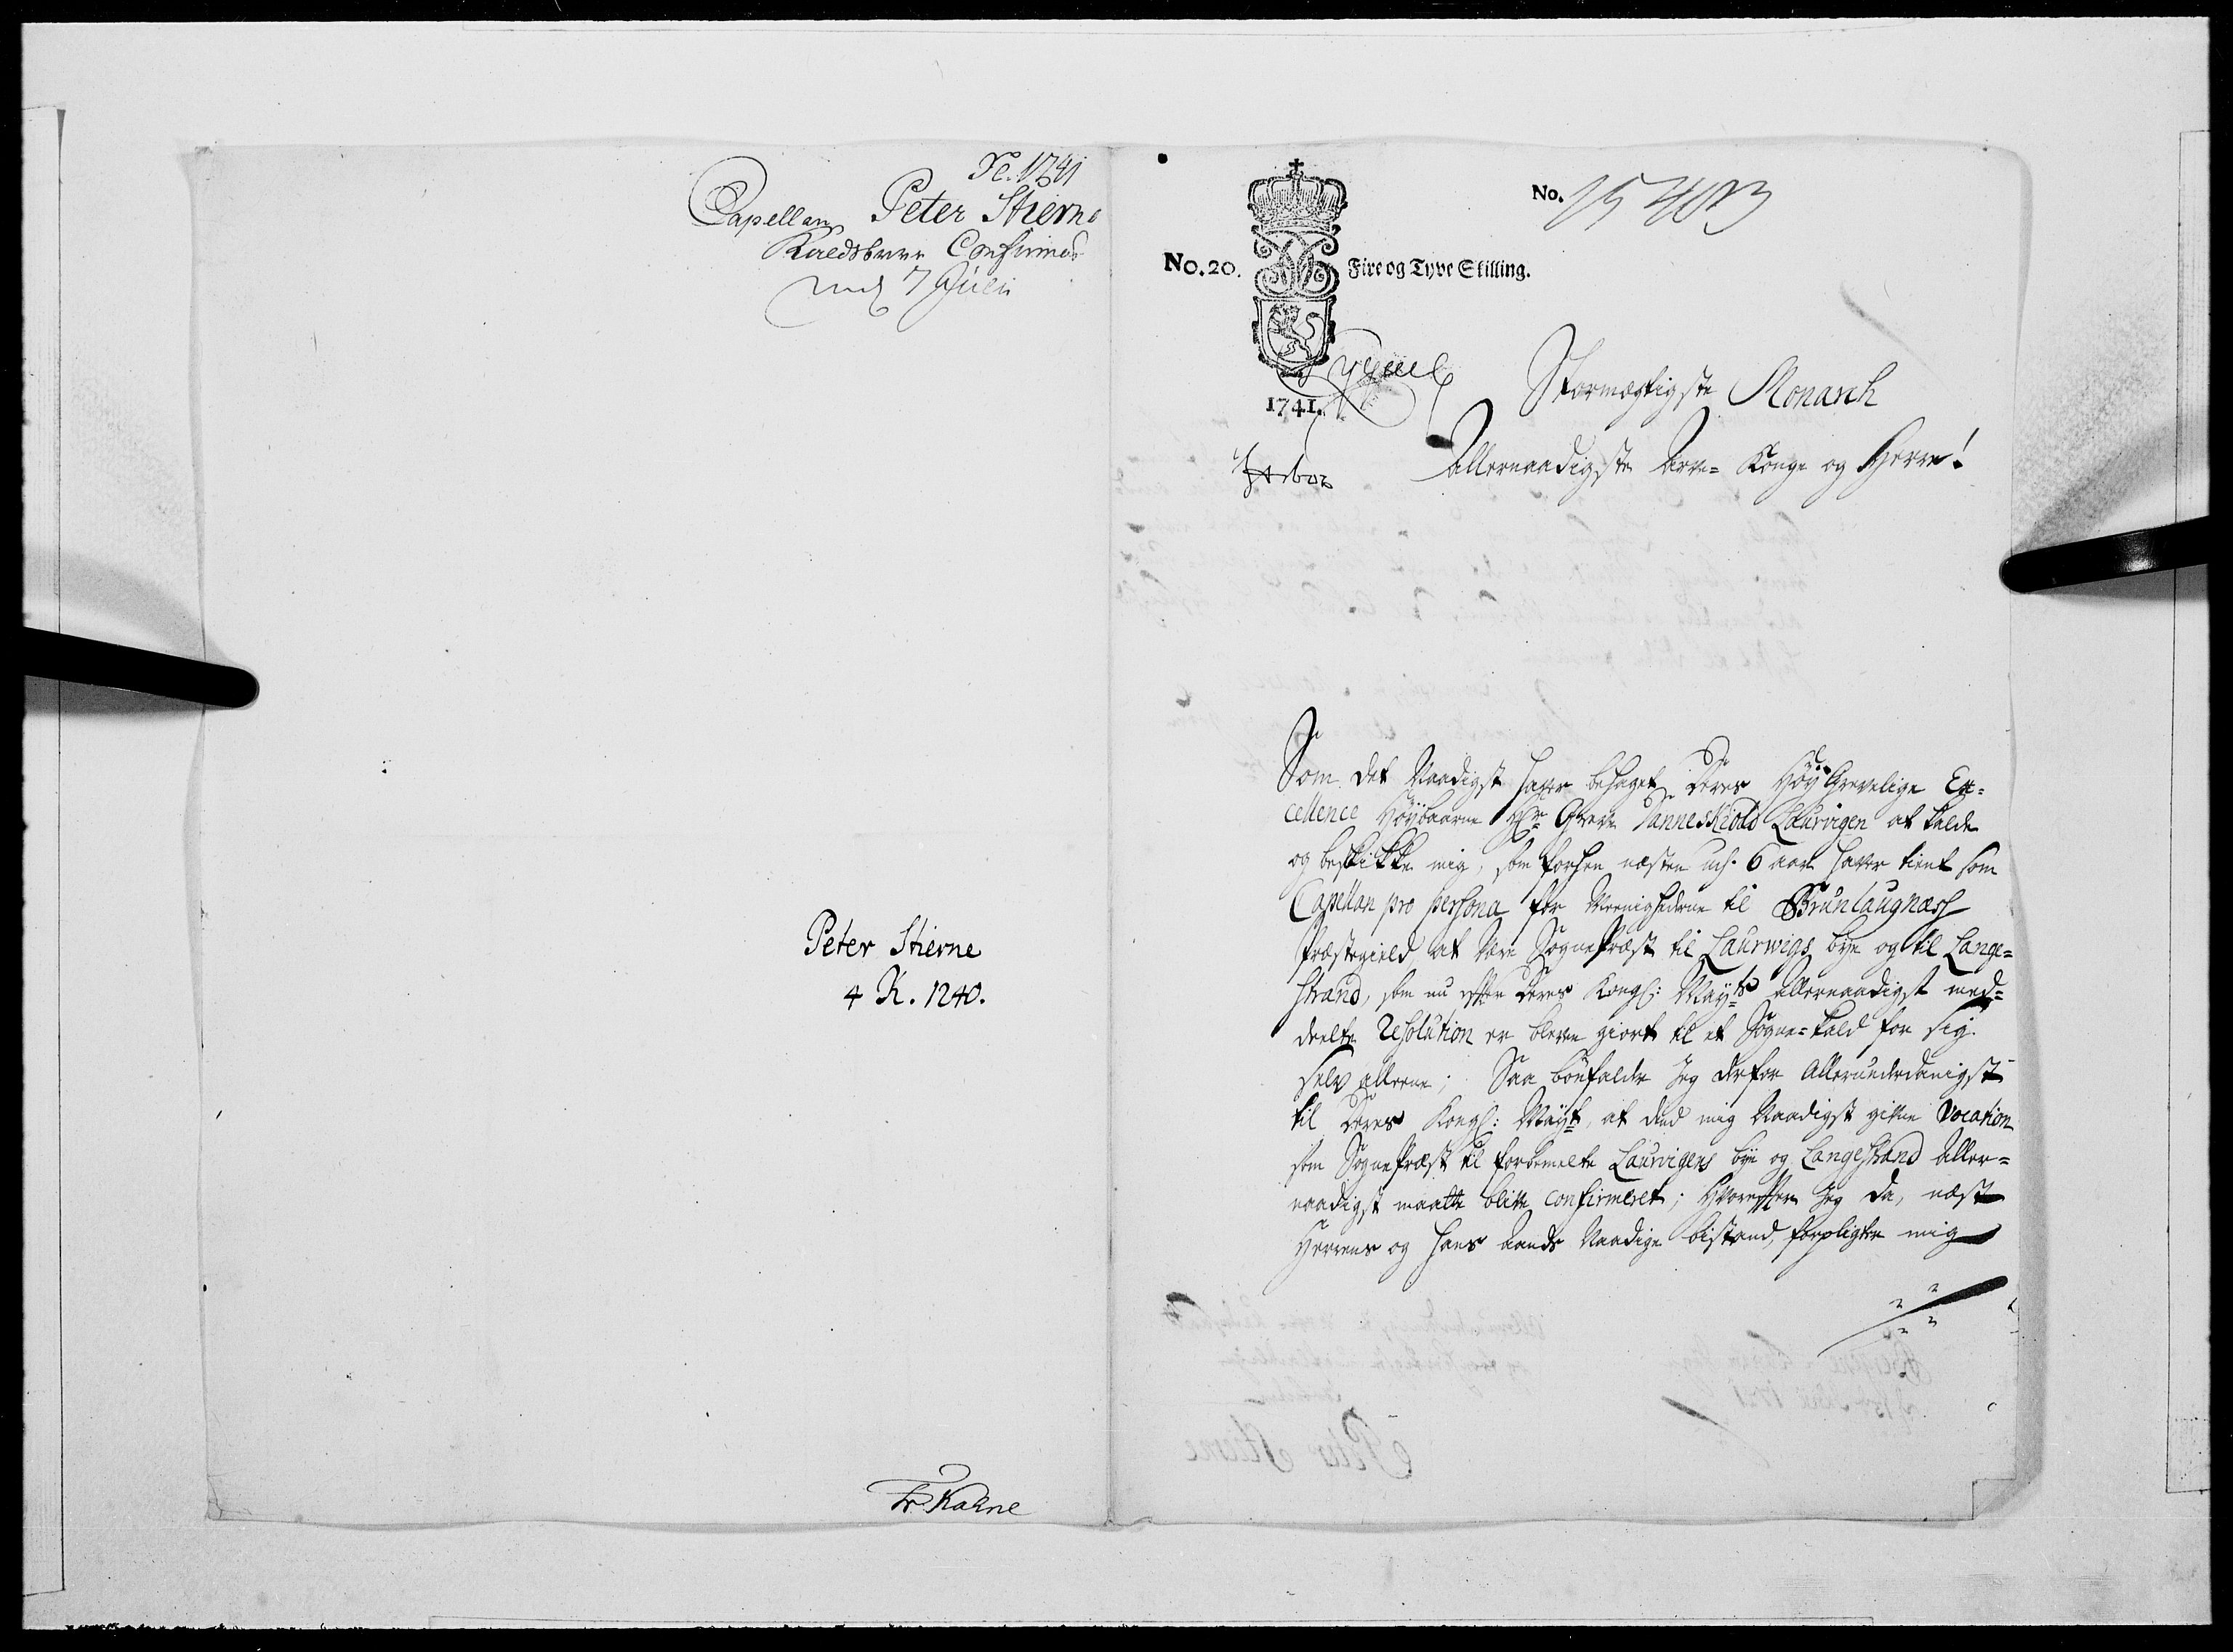 Capellan Peter Stierne
Kaldsbrev Confirmered
7 Julii
Peter Stierne
4 K. 1240.
Fr. Rahne
No. 15403
No. 20.
Fire og Tyve Skilling.
1741.
Stormægtigste Monarch
Allernaadigste Arve- Konge og Herre!
Som det Naadigst haver behaget Deres Høy Grevelige Ex-
cellence Høybaarne Hr Greve Danneskiold Laurvigen at kalde
og beskikke mig, som forhen næsten udj 6 aar haver tient som
Capellan pro persona for Meenighederne til Brunlaugnæss
Præstegield, at være SognePræst til Laurwigs bye og til Lange-
strand, som nu efter Deres Kongl: Mayts allernaadigst med-
deelte Resolution er bleven giort til et Sogne-kald for sig
selv alleene; Saa bønfalder Jeg derfor Allerunderdanigst
til Deres Kongl: Mayt, at dend mig Naadigst givne Vocation
som SognePræst til forbemelte Laurvigens bye og Langestrand Aller-
naadigst maatte blive confirmeret; Hvorefter Jeg da, næst
Herrens og hans Aands Naadige bistand, forpligter mig